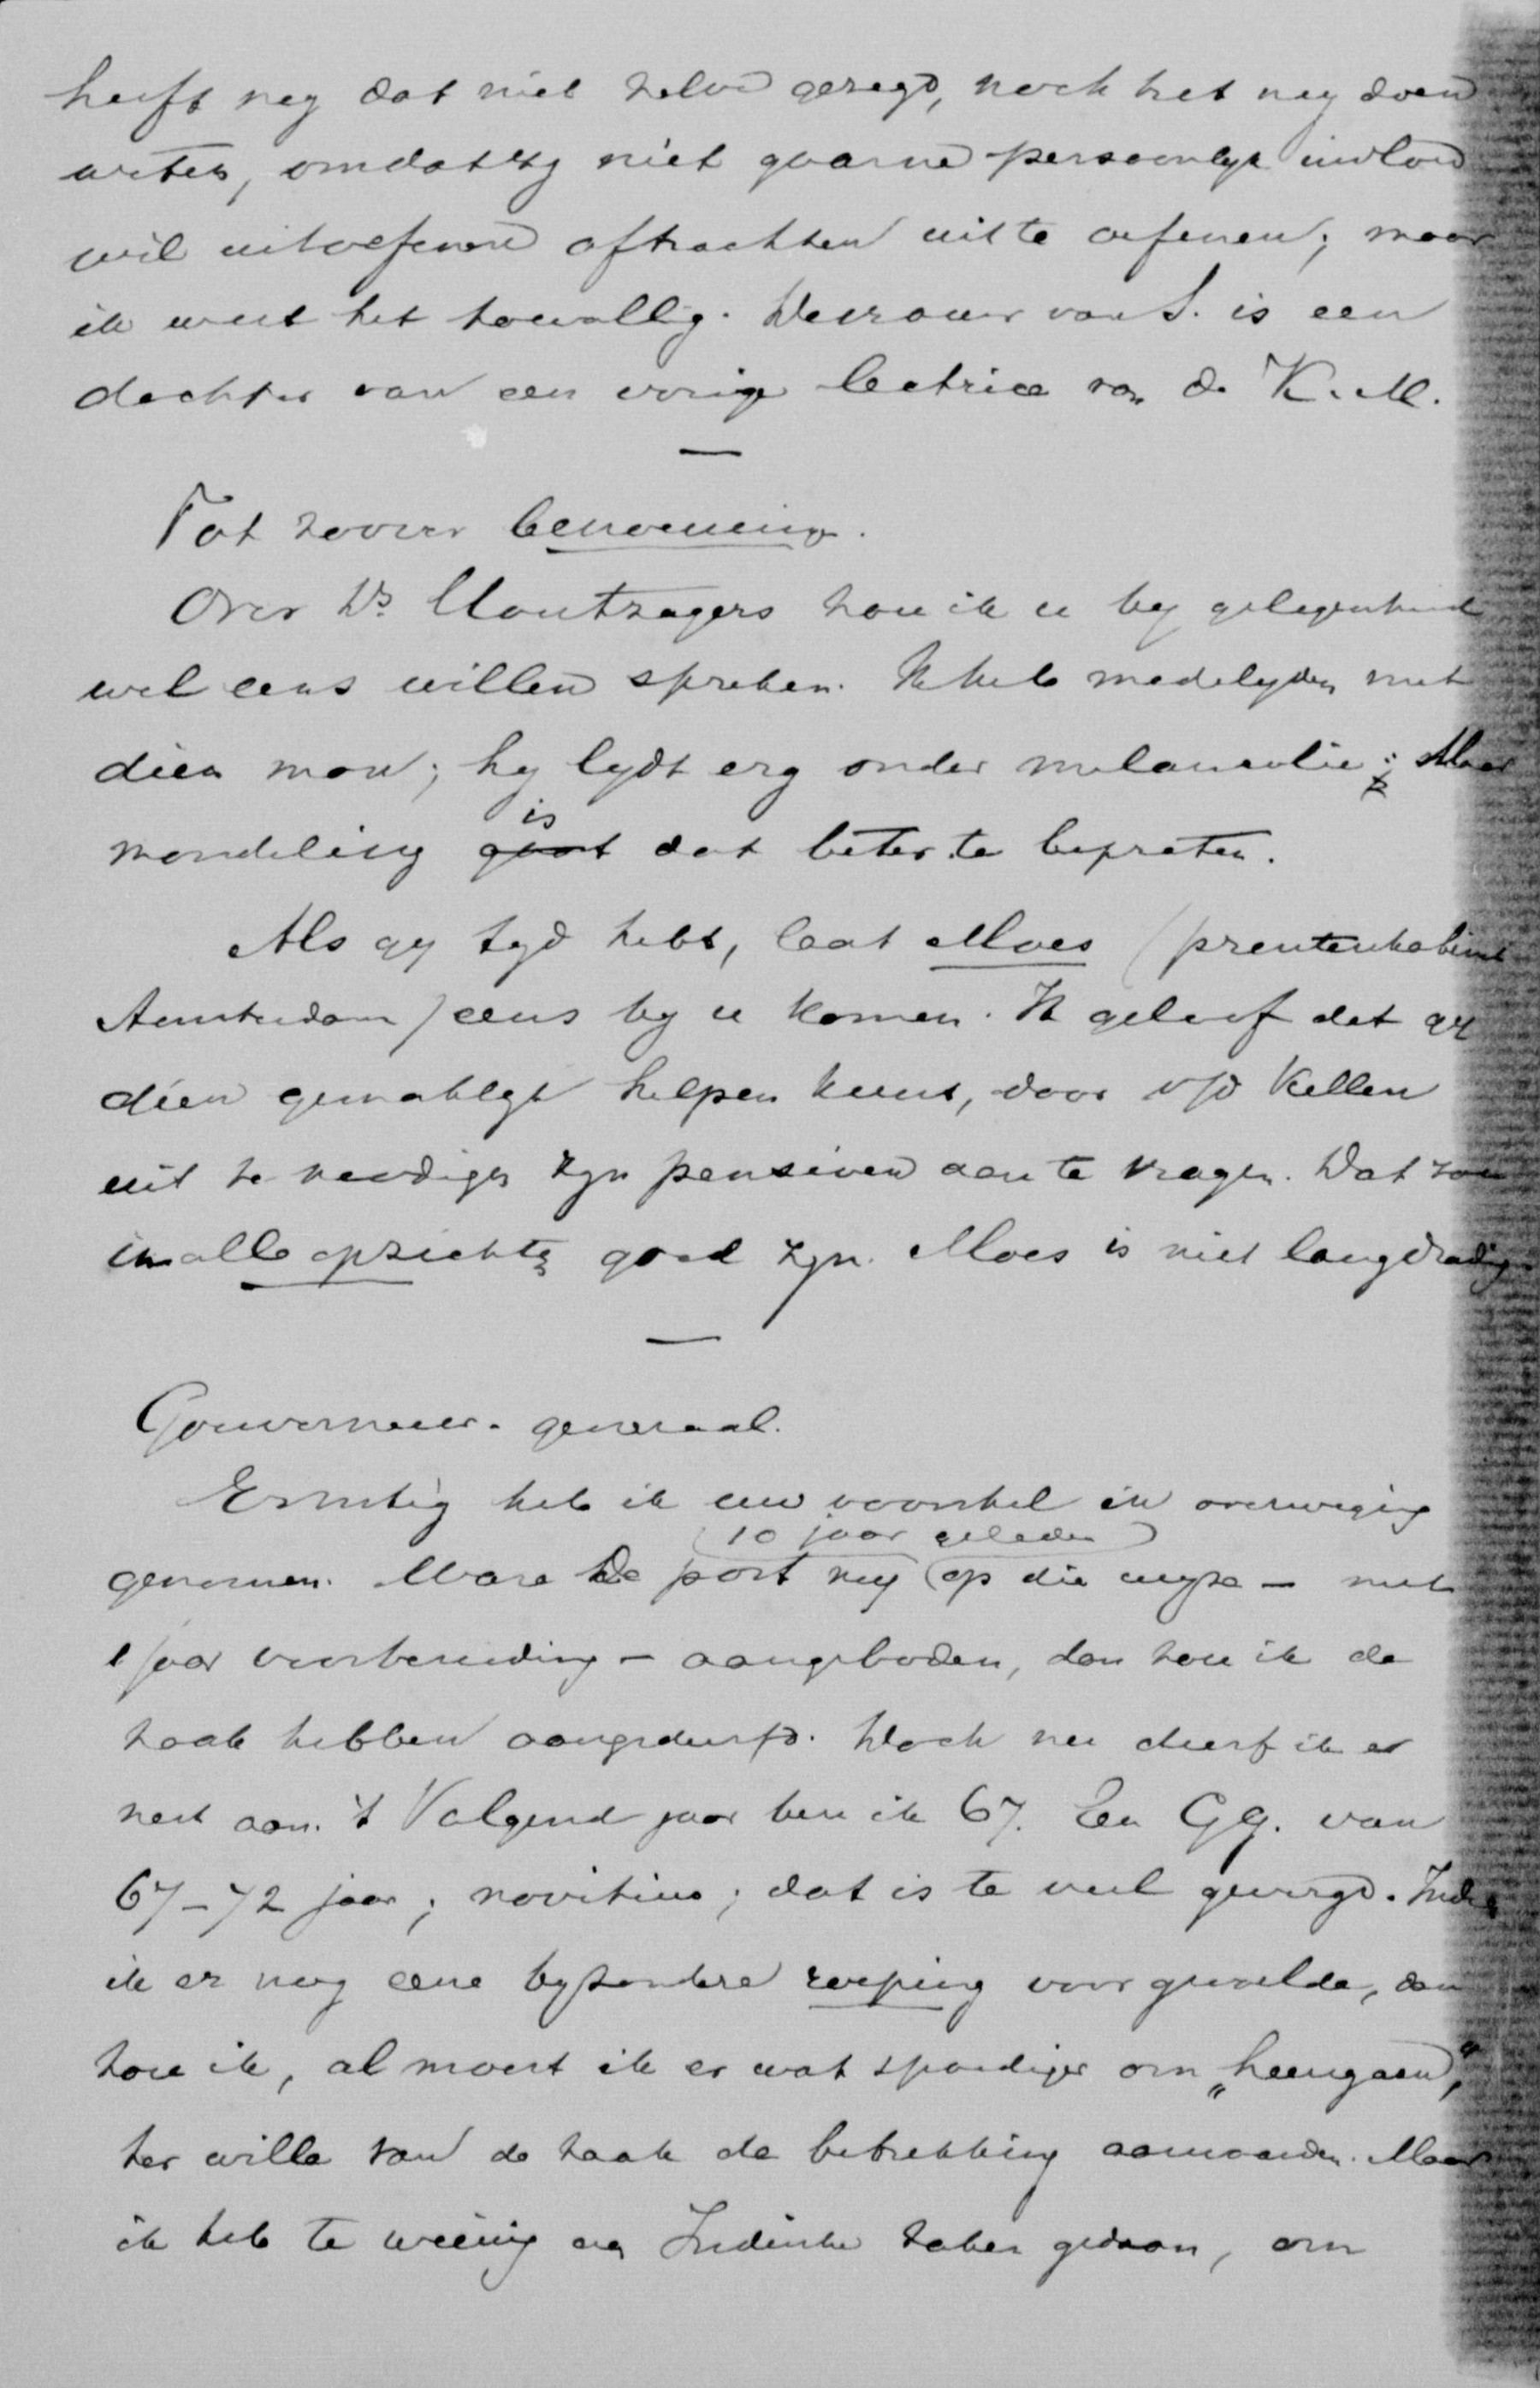 heeft my dat niet zelve gezegd, noch het my doen
weten, omdat zy niet gaarne persoonlyk invloed
wil uitoefenen of trachten uit te oefenen; maar
ik weet het toevallig. De vrouw van S. is een
dochter van een vorige lectrice van de K. M.
—
Tot zoover benoeming.
Over Dr. Montzagers zou ik u by gelegenheid
wel eens willen spreken. Ik heb medelyden met
dien man; hy lydt erg onder melancolie; Maar
mondeling gaat is dat beter te bepraten.
Als gy tyd hebt, laat Moes (prentenkabinet
Amsterdam) eens by u komen. Ik geloof dat gy
dien gemaklyk helpen kunt, door v/d Kellen
uit te noodigen zyn pensioen aan te vragen. Dat zou
in alle opzichten goed zyn. Moes is niet langdradig.
—
Gouverneur-generaal.
Ernstig heb ik uw voorstel in overweging
(10 jaar geleden)
genomen. Ware de post my op die wyze - met
1 jaar voorbereiding - aangeboden, dan zou ik de
zaak hebben aangedurfd. Doch nu durf ik er
niet aan. 't Volgend jaar ben ik 67. Een GG. van
67-72 jaar; novitius; dat is te veel gevergd. Indien
ik er nog eene byzondere roeping voor gevoelde, dan
zou ik, al moest ik er wat spoediger om „heengaan",
ter wille van de zaak de betrekking aanvaarden. Maar
ik heb te weinig aan Indische zaken gedaan, om